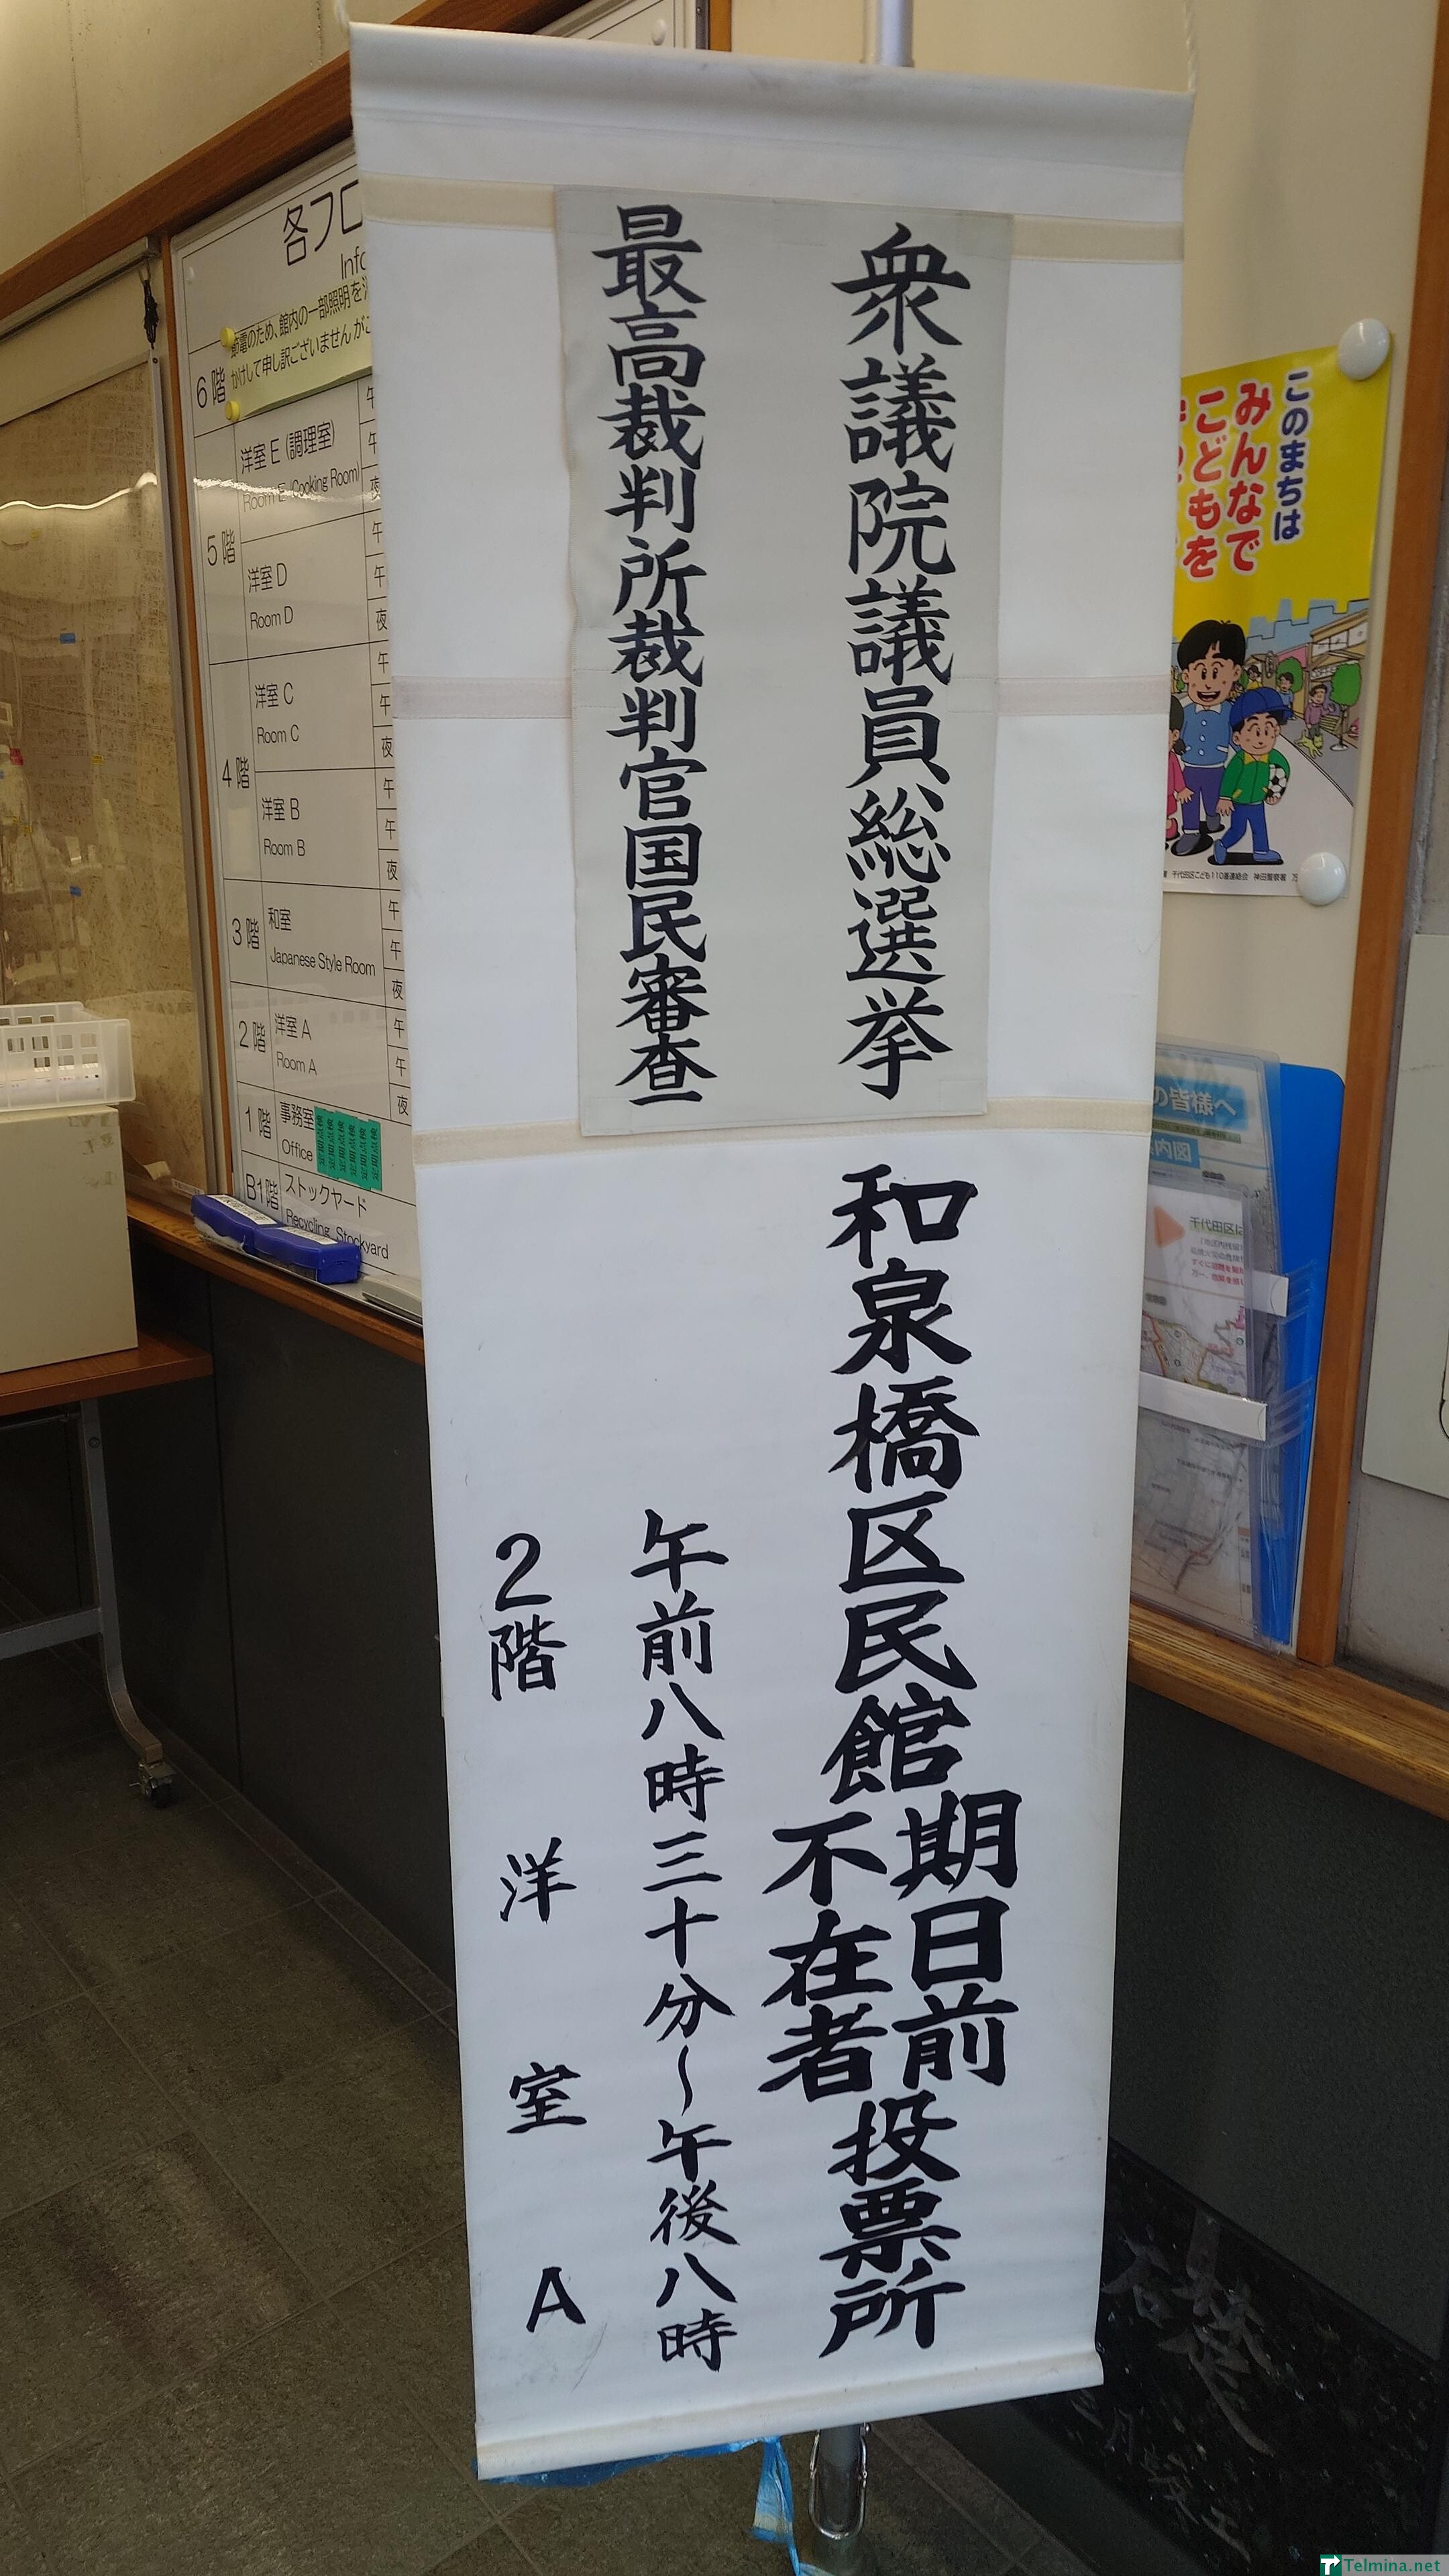 衆議院議員総選挙
最高裁判所裁判官国民審査
和泉橋区民館
期日前
不在者
投票所
午前八時三十分～午後八時
2階 洋室A
各フロ
Info
節電のため、館内の一部照明を
かけして申し訳ございませんが
6階
5階
洋室E(調理室)
Room E (Cooking Room)
洋室D
Room D
4階
洋室C
Room C
洋室B
Room B
3階
和室
Japanese Style Room
2階
洋室A
Room A
1階
事務室
Office
B1階
ストックヤード
Recycling Stockyard
午
夜
午
午
夜
午
午
夜
午
午
夜
午
午
夜
午
午
夜
このまちは
みんなで
こどもを
千代田区こども110番連絡会 神田警察署
の皆様へ
内図
千代田区は
Telmina.net